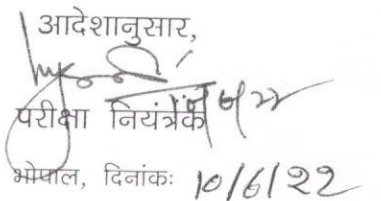 आदेशानुसार,
परीक्षा नियंत्रक
भोपाल, दिनांकः 10/6/22